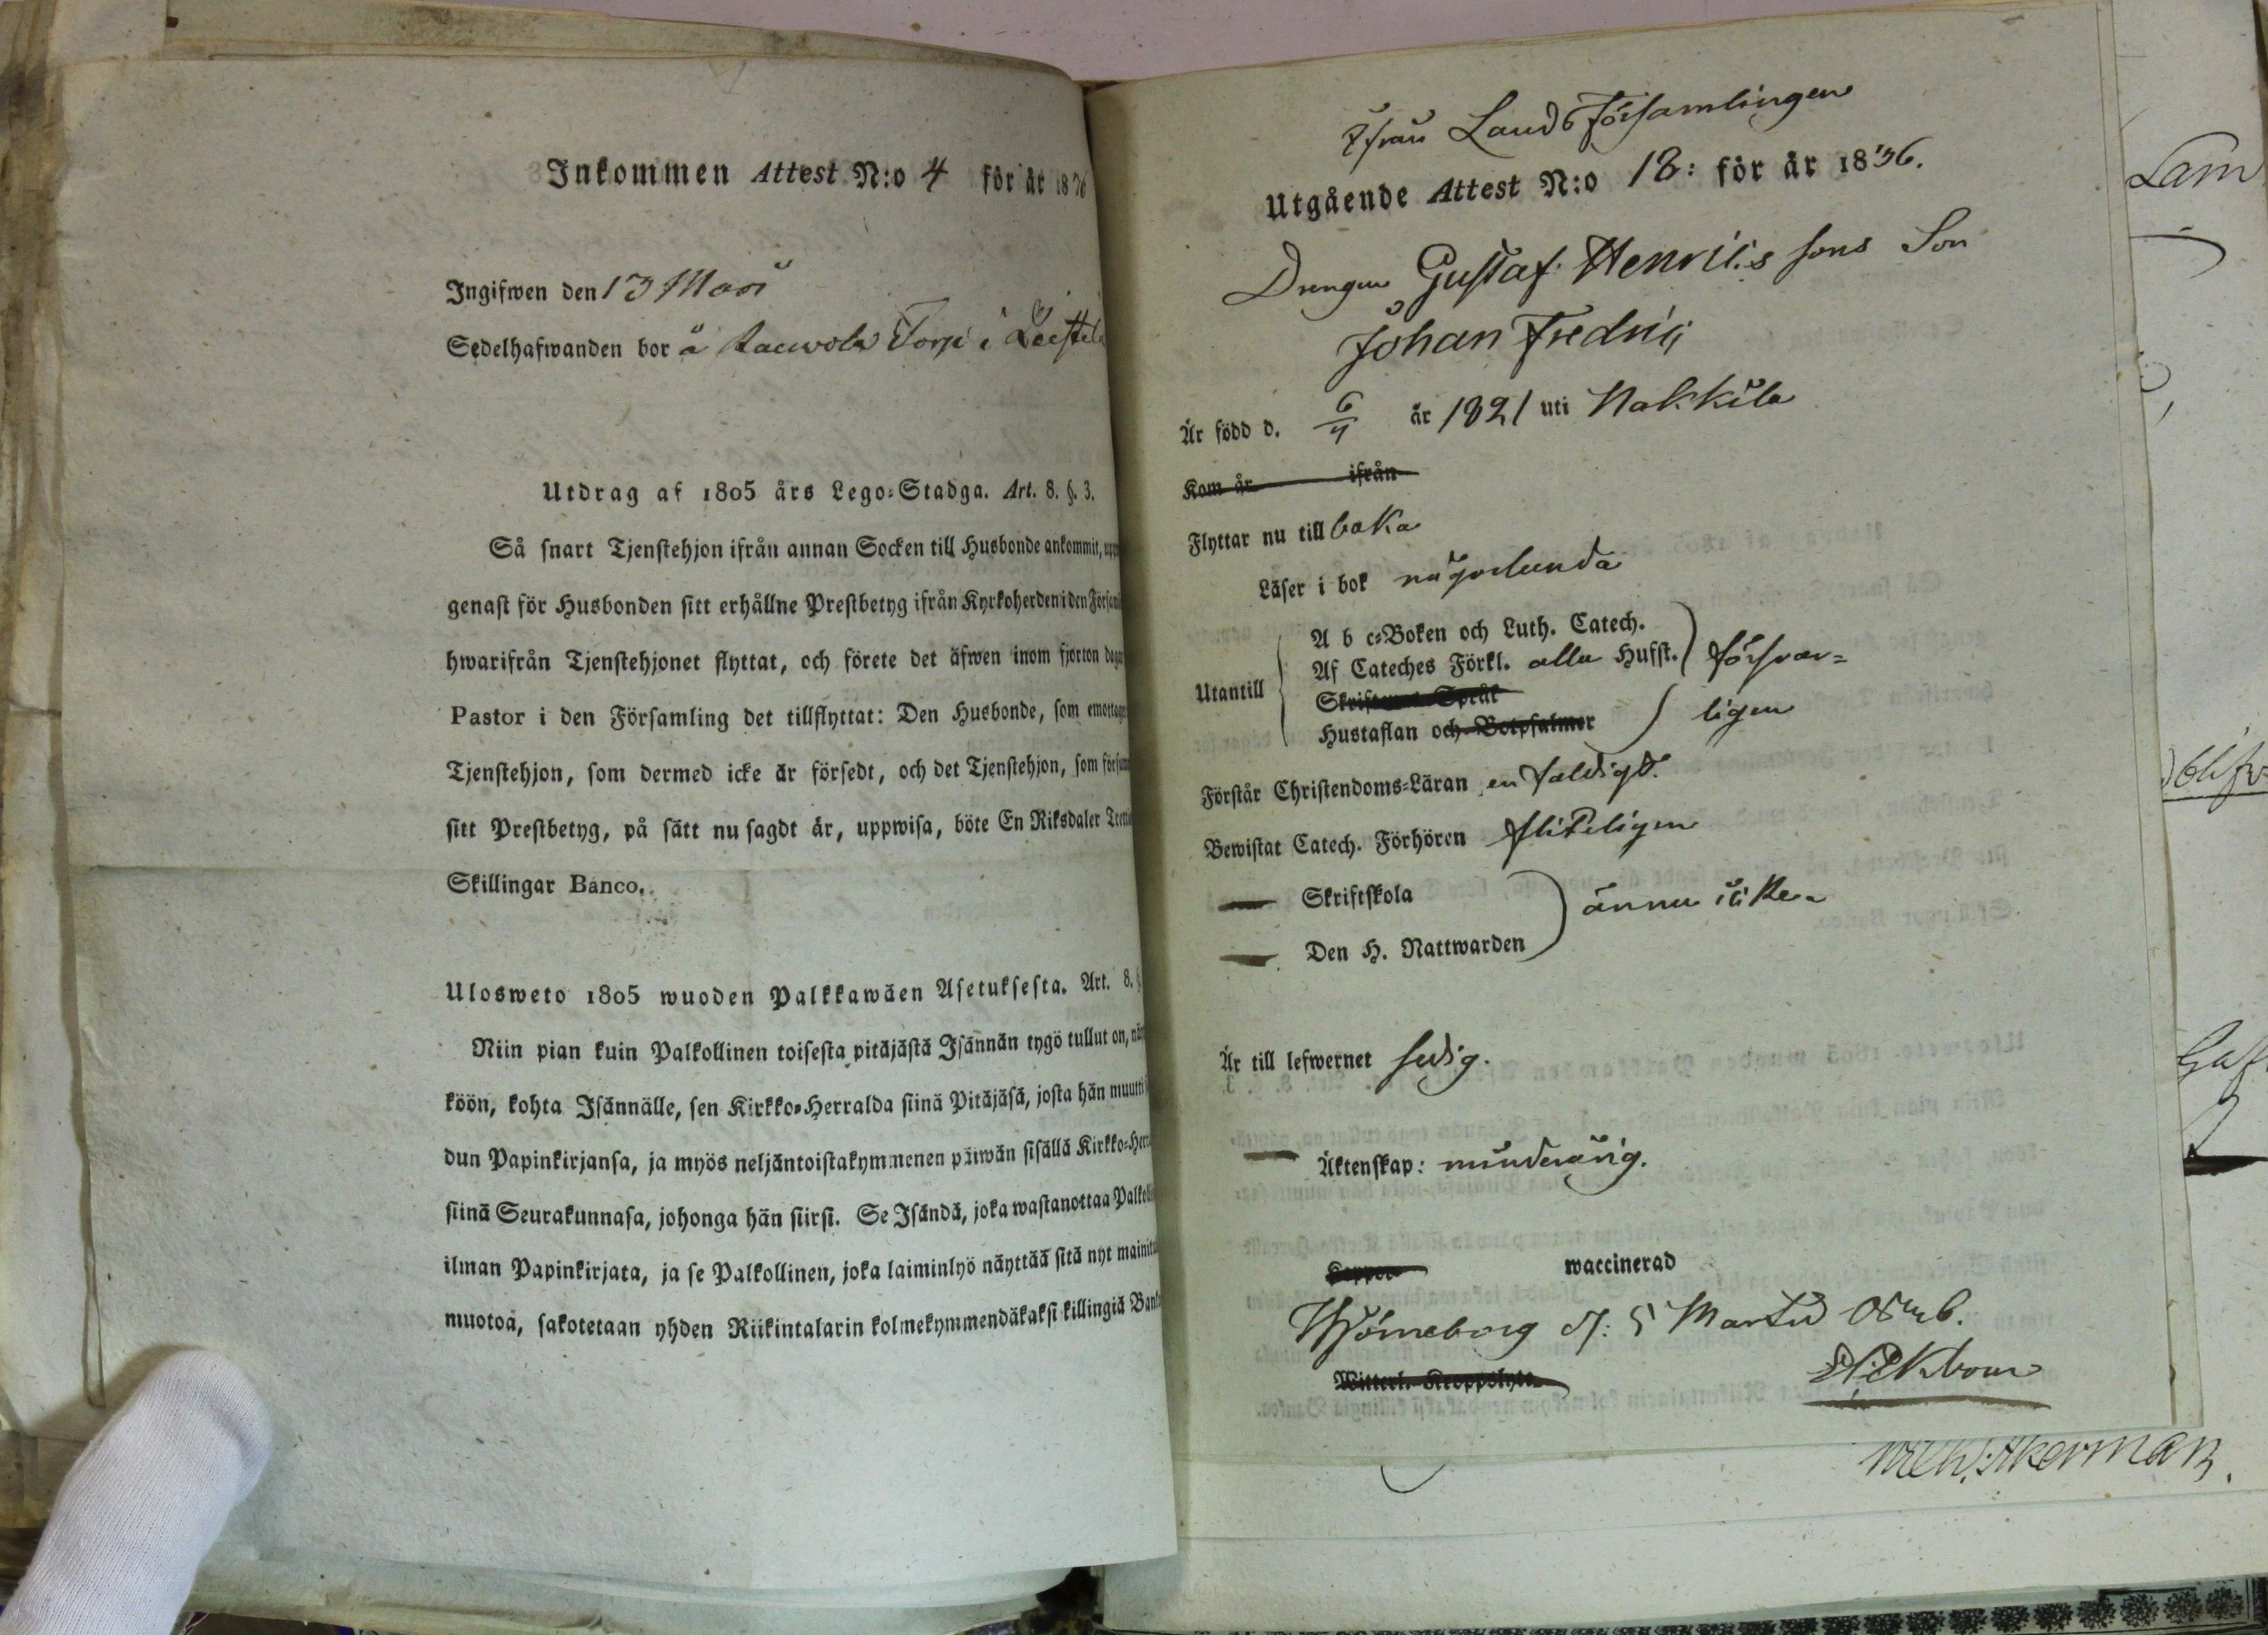 Inkommen Attest N:o 4 för år 1836
Ingifwen den 13 Mars
Sedelhafwanden bor å Torp i
Utdrag af 1805 års Lego-Stadga. Art. 8. §. 3.
Så snart Tjenstehjon ifrån annan Socken till Husbonde ankommit, upp
genast för Husbonden sitt erhållne Prestbetyg ifrån Kyrkoherden i den Försam
hwarifrån Tjenstehjonet flyttat, och förete det äfwen inom fjorton dagar
Pastor i den Församling det tillflyttat: Den Husbonde, som emottager
Tjenstehjon, som dermed icke är försedt, och det Tjenstehjon, som försum
sitt Prestbetyg, på sätt nu sagdt är, uppwisa, böte En Riksdaler Trettio
Skillingar Banco.
Ulosweto 1805 wuoden Palkkawäen Asetuksesta. Art. 8. §.
Niin pian kuin Palkollinen toisesta pitäjästä Isännän tygö tullut on, näyt
köön, kohta Isännälle, sen Kirkko-Herralda siinä Pitäjäsä, josta hän muutti
dun Papinkirjansa, ja myös neljäntoistakymmenen päiwän sisällä Kirkko-Herra
siinä Seurakunnasa, johonga hän siirsi. Se Isändä, joka wastanottaa Palkolli
ilman Papinkirjata, ja se Palkollinen, joka laiminlyö näyttää sitä nyt mainitu
muotoa, sakotetaan yhden Riikintalarin kolmekymmendäkaksi killingiä Banko
Ifrån Landsförsamlingen
Utgående Attest N:o 18: för år 1836.
Drengen Gustaf Henrics sons Son
Johan Fredric
Är född d. 6/4 år 1821 uti Nakkila
Kom år ifrån
Flyttar nu tillbaka
Läser i bok någorlunda
Utantill
A b c-Boken och Luth. Catech.
Af Cateches Förkl. alla Hufst. försvar-
Skriftenes Språk
Hustaflan och Botpsalmer ligen
Förstår Christendoms-Läran enfaldigt.
Bewistat Catech. Förhören fliteligen
— Skriftskola
ännu icke.
— Den H. Nattwarden
Är till lefwernet sedig.
— Äktenskap: minderårig.
Koppor waccinerad
Björneborg d. 5 Martii
Witterl. Kroppslyte
Åkerman.
Lam